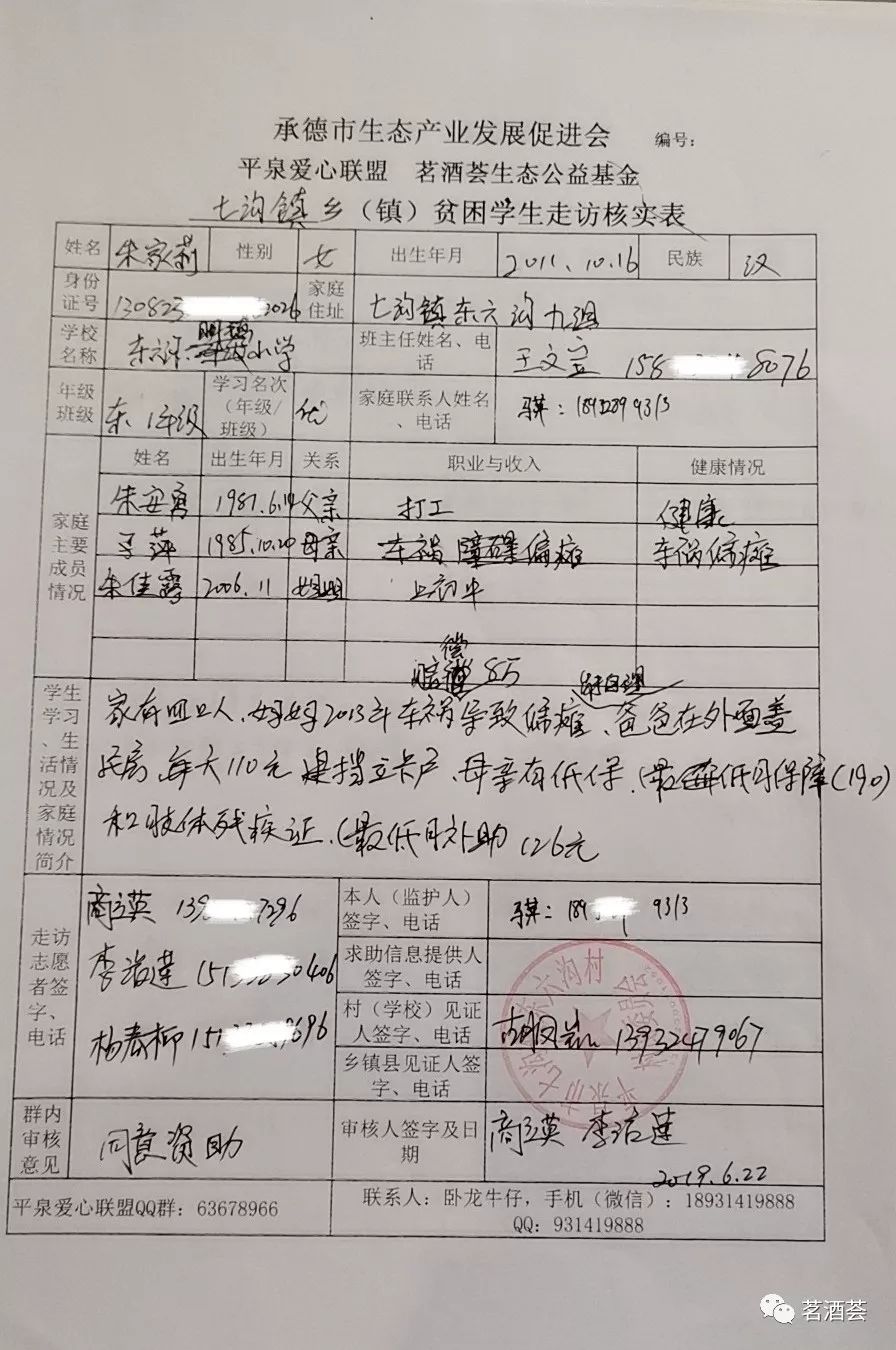 承德市生态产业发展促进会 编号：
平泉爱心联盟 茗酒荟生态公益基金
七沟镇乡（镇）贫困学生走访核实表
姓名 朱家莉 性别 女 出生年月 2011.10.16 民族 汉
身份证号 130823 2026 家庭住址 七沟镇东六沟九组
学校名称 东六沟 小学 班主任姓名、电话 王文立 158 8076
年级班级 东.1年级 学习名次（年级/班级） 优 家庭联系人姓名、电话
家庭主要成员情况
姓名 出生年月 关系 职业与收入 健康情况
朱安勇 父亲 打工 健康
萍 1985.10.20 母亲 车祸 偏瘫 车祸偏瘫
朱佳露 2006.11 姐姐 上初中
赔偿 8万
学生学习、生活情况及家庭情况简介
家有四口人、妈妈2013年车祸导致偏瘫、爸爸在外面盖
民房 每天110元 建档立卡户、母亲有低保、(最低月保障(190)
和肢体残疾证、(最低月补助 126元
走访志愿者签字、电话
商立英 139 7296
李洁莲 151 30406
杨春柳 151 9696
本人（监护人）签字、电话 189 9313
求助信息提供人签字、电话
村（学校）见证人签字、电话 胡凤 13932479067
乡镇县见证人签字、电话
群内审核意见 同意资助
审核人签字及日期 商立英 李洁莲
2019.6.22
平泉爱心联盟QQ群：63678966
联系人：卧龙牛仔，手机（微信）：18931419888
QQ：931419888
茗酒荟